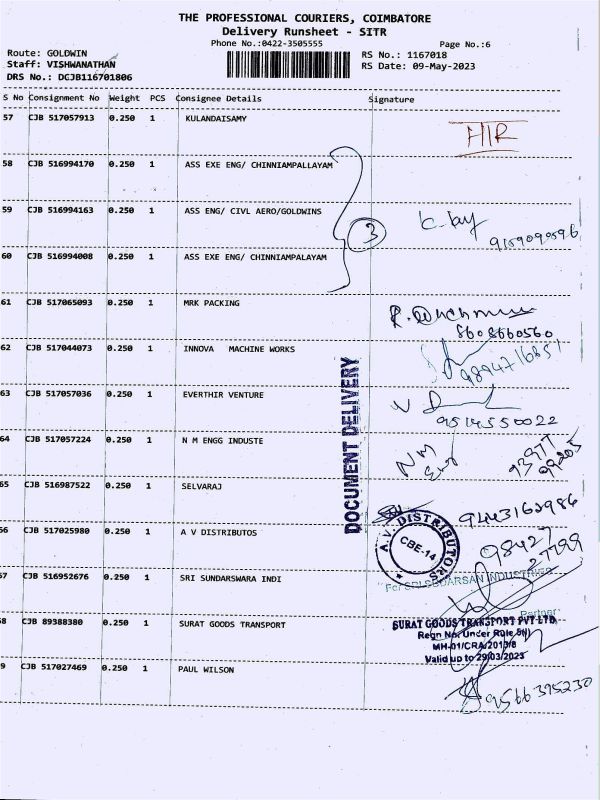 THE PROFESSIONAL COURIERS, COIMBATORE
Delivery Runsheet - SITR
Phone No.:0422-3505555
Page No.:6
Route: GOLDWIN
RS No.: 1167018
Staff: VISHWANATHAN
RS Date: 09-May-2023
DRS No.: DCJB116701806
S No Consignment No Weight PCS Consignee Details Signature
57 CJB 517057913 0.250 1 KULANDAISAMY
58 CJB 516994170 0.250 1 ASS EXE ENG/ CHINNIAMPALLAYAM
59 CJB 516994163 0.250 1 ASS ENG/ CIVL AERO/GOLDWINS
3
60 CJB 516994008 0.250 1 ASS EXE ENG/ CHINNIAMPALAYAM
61 CJB 517065093 0.250 1 MRK PACKING
8608660560
62 CJB 517044073 0.250 1 INNOVA MACHINE WORKS
9894716651
63 CJB 517057036 0.250 1 EVERTHIR VENTURE
9514550022
DOCUMENT DELIVERY
64 CJB 517057224 0.250 1 N M ENGG INDUSTE
NM
65 CJB 516987522 0.250 1 SELVARAJ
9443162986
66 CJB 517025980 0.250 1 A V DISTRIBUTOS
A.V. DISTRIBUTORS
CBE-14
98427
27799
67 CJB 516952676 0.250 1 SRI SUNDARSWARA INDI
For SRI SUDARSAN INDUSTRIES
Partner
8 CJB 89388380 0.250 1 SURAT GOODS TRANSPORT
SURAT GOODS TRANSPORT PVT LTD.
Regn No. Under Rule 5(i)
MH-01/CRA/2013/8
Valid up to 29/03/2023
9 CJB 517027469 0.250 1 PAUL WILSON
9566395230